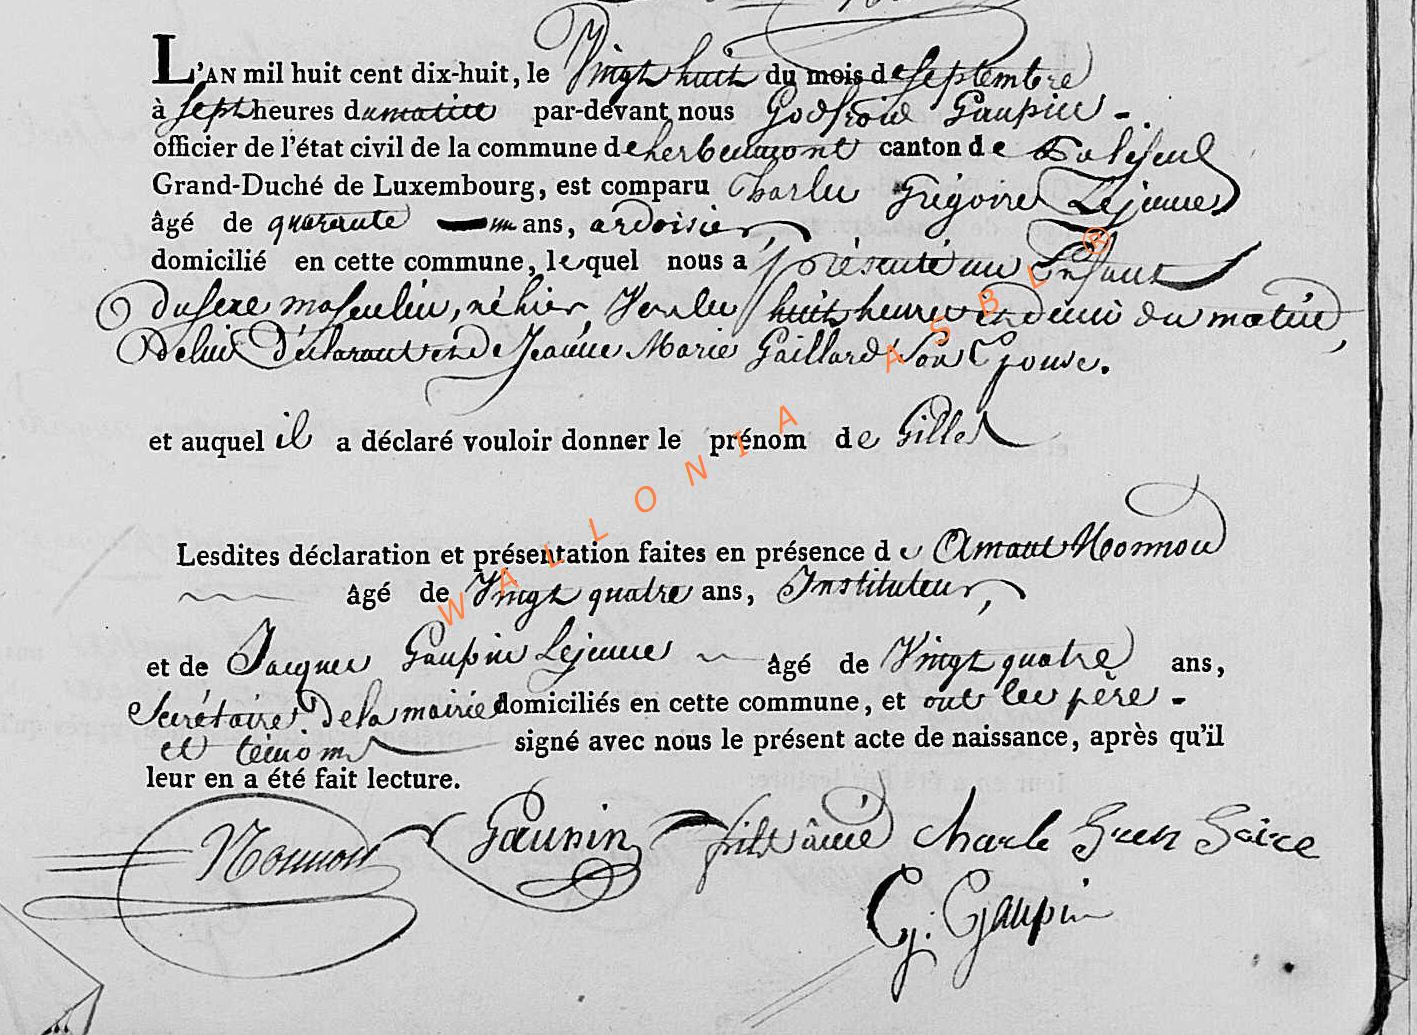 L'AN mil huit cent dix-huit, le Vingt huit du mois de Septembre
à Sept heures du matin par-devant nous Godfroid Gaupin -.
officier de l'état civil de la commune de herbeumont canton de Paliseul
Grand-Duché de Luxembourg, est comparu Charles Grégoire Lejeune
âgé de quarante ans, ardoisier,
domicilié en cette commune, lequel nous a présenté un Enfant
du Sexe masculin, né hier, Vers les huit heures et demi du matin,
De lui Déclarant et de Jeanne Marie Gaillard Son Epouse.
et auquel il a déclaré vouloir donner le prénom de Gilles
Lesdites déclaration et présentation faites en présence de Amant Monnon
âgé de Vingt quatre ans, Instituteur,
et de Jacques Gaupin Lejeune âgé de Vingt quatre ans,
Secrétaire De la mairie domiciliés en cette commune, et ont les père -
et témoins signé avec nous le présent acte de naissance, après qu'il
leur en a été fait lecture.
Monnon Gaupin fils aîné Charle
G. Gaupin
WALLONIA ASBL ®